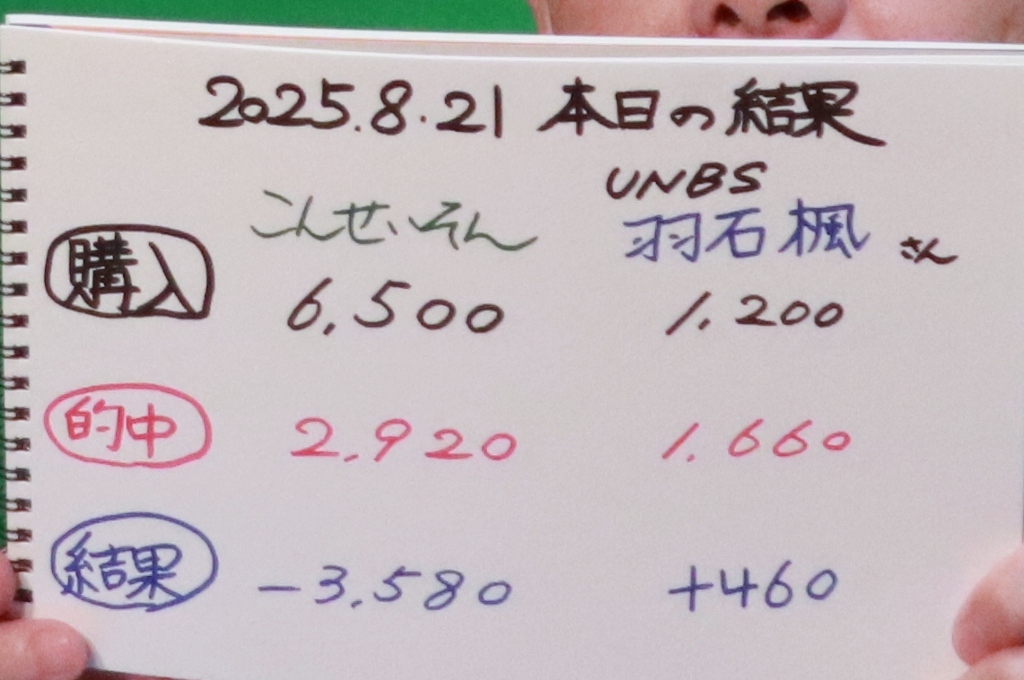 2025.8.21 本日の結果
UNBS
こんせいそん 羽石楓さん
購入 6,500 1.200
的中 2.920 1.660
結果 -3.580 +460